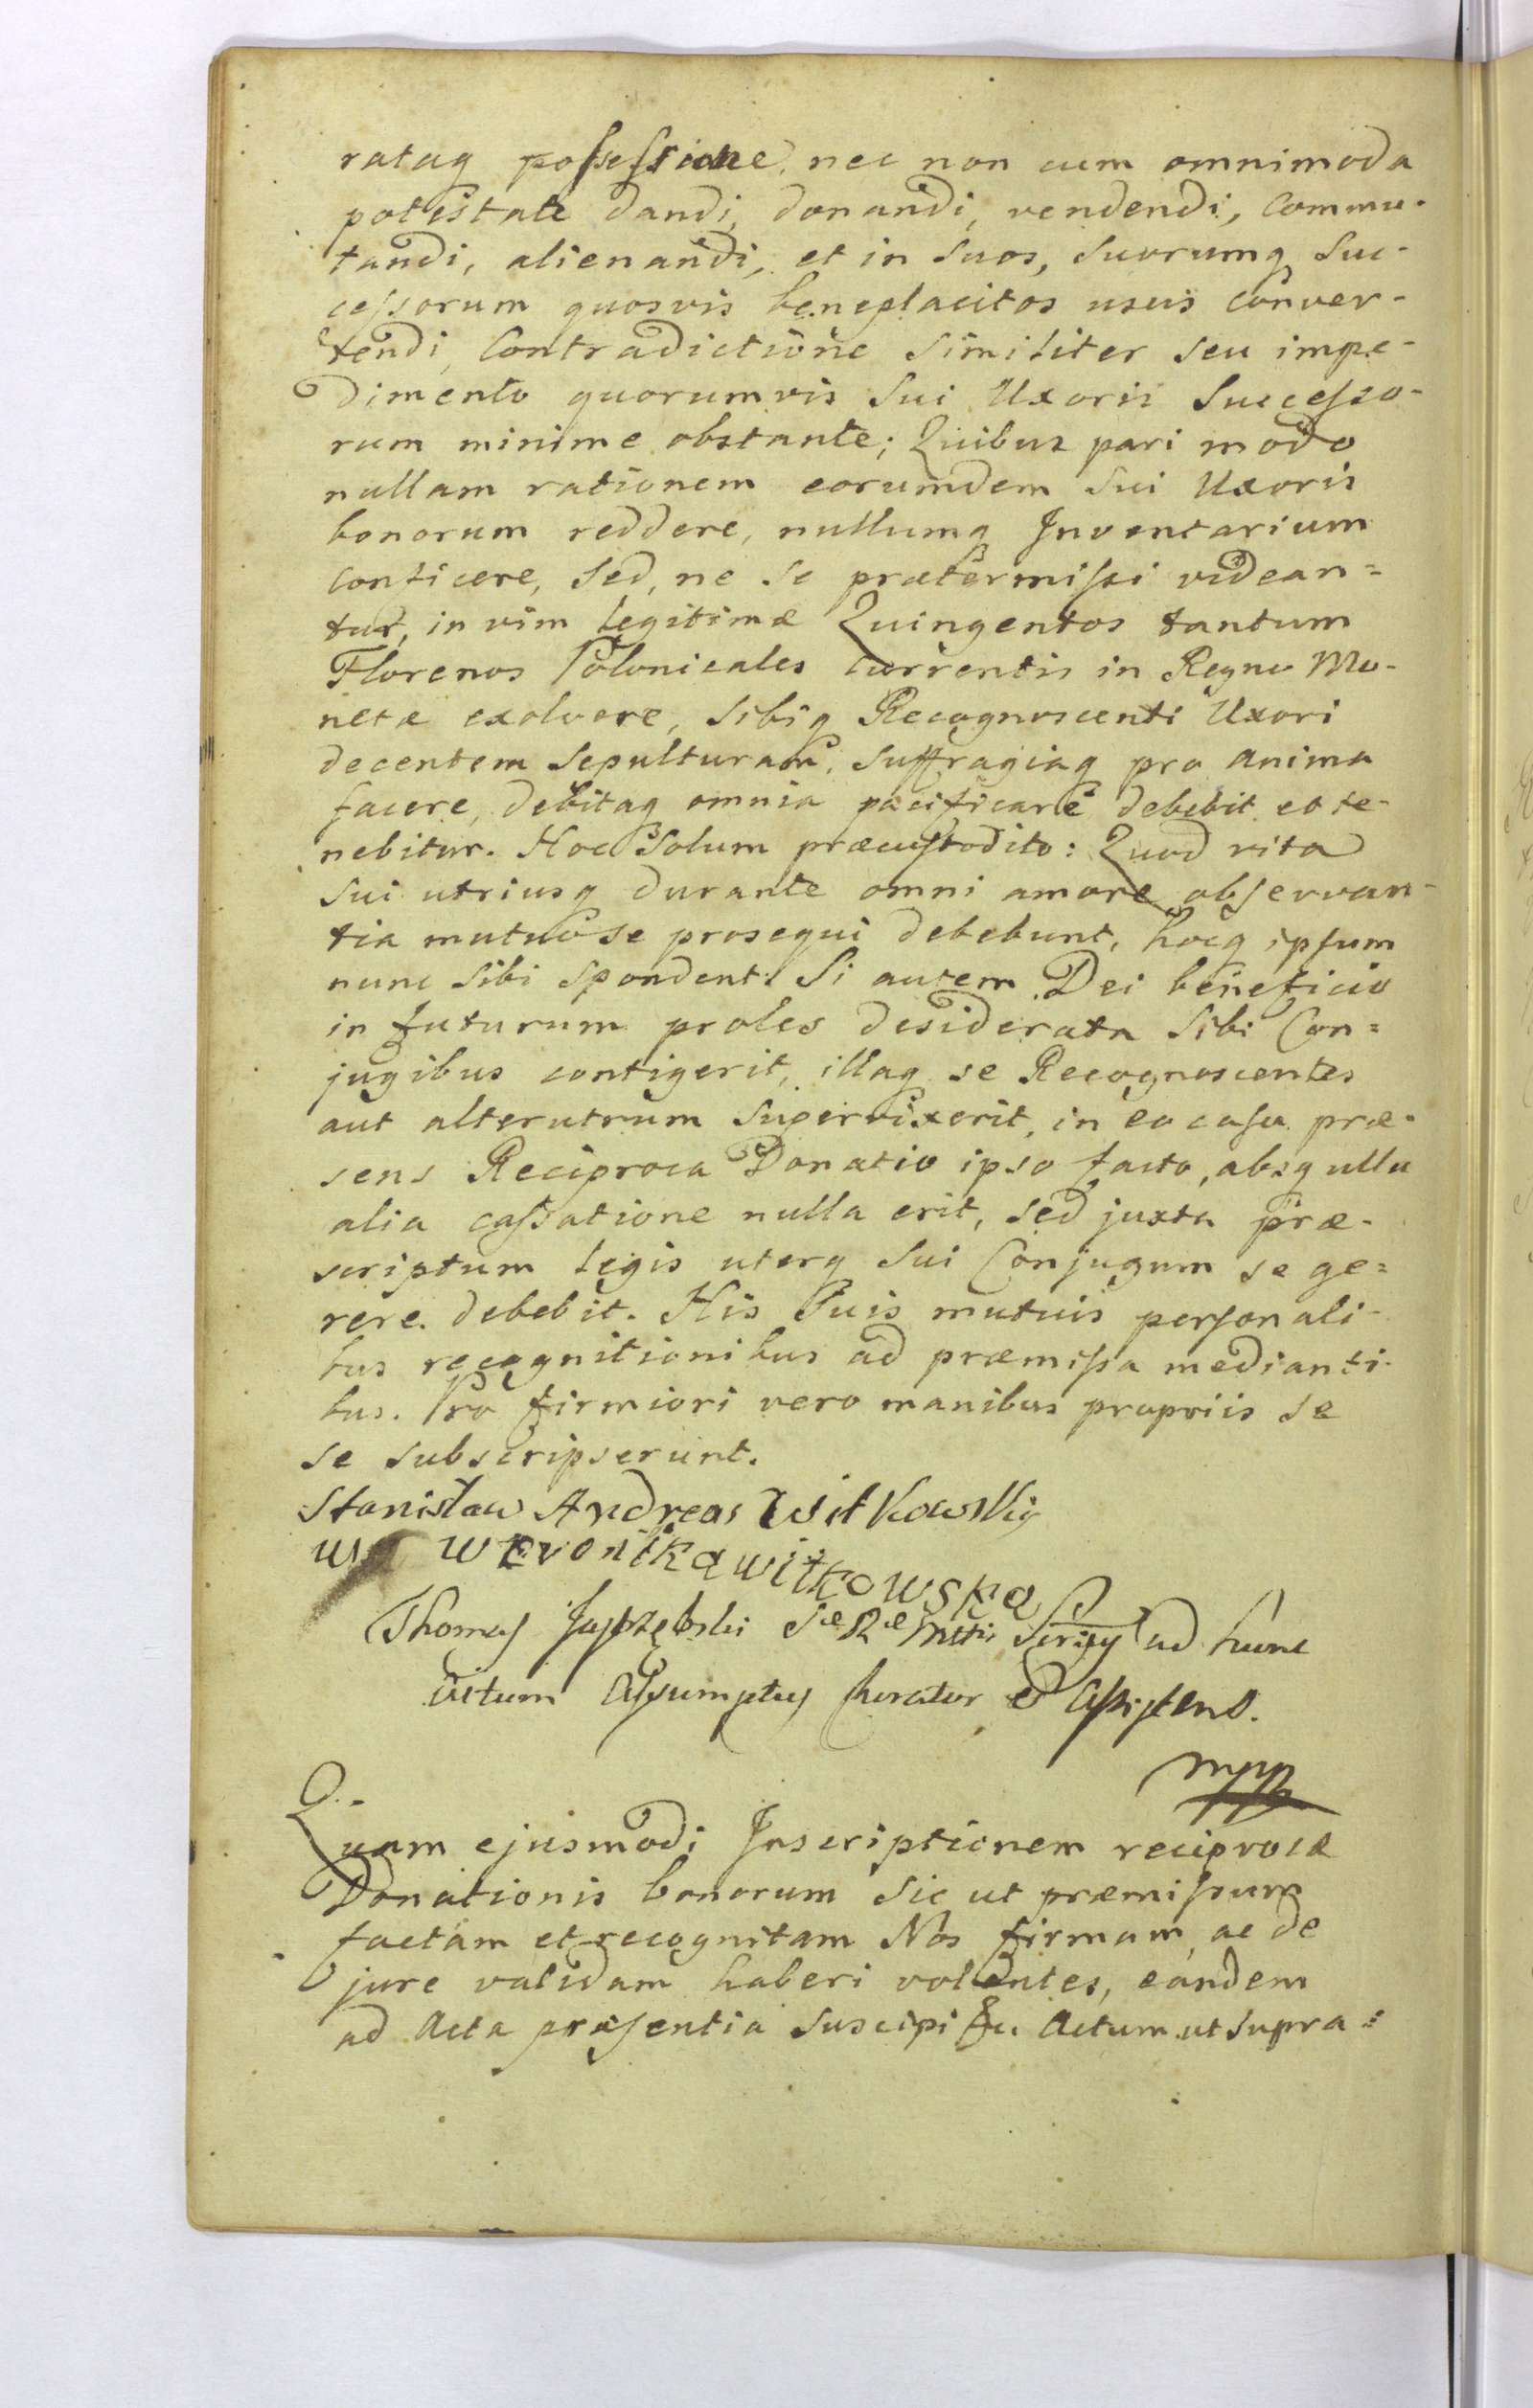 rataq possessione, nec non cum omnimoda
potestate dandi, donandi, vendendi, Commu-
tandi, alienandi, et in Suos, Suorumq Suc-
cessorum quosvis beneplacitos usus conver-
tendi, Contradictione Similiter seu impe-
dimento quorumvis Sui Uxoris Successo-
rum minime obstante; Quibus pari modo
nullam rationem eorumdem Sui Uxoris
bonorum reddere, nullumq Inventarium
conficere, Sed, ne se prætermissi videan=
tur, in vim legitimæ Quingentos tantum
Florenos Polonicales currentis in Regno Mo-
netæ exolvere, Sibiq Recognoscenti Uxori
decentem Sepulturam, Suffragiaq pro anima
facere, debitaq omnia pacificare debebit et te-
nebitur. Hoc Solum præcustodito: Quod vita
Sui utriusq durante omni amore observan-
tia mutuo se prosequi debebunt, hocq ipsum
nunc Sibi Spondent. Si autem Dei beneficio
in futurum proles desiderata Sibi Con=
jugibus contigerit, illaq se Recognoscentes
aut alterutrum Supervixerit, in eo casu præ-
sens Reciproca Donatio ipso facto, absq ulla
alia cassatione nulla erit, Sed juxta præ-
scriptum legis uterq Sui Conjugum se ge=
rere debebit. His Suis mutuis personali-
bus recognitionibus ad præmissa medianti-
bus. Pro firmiori vero manibus propriis se
se subscripserunt.
Stanisław Andreas Witkowski
Weronika witkowska
Thomas Jastrzębski Sæ Ræ Mttis ad hunc
actum Assumptus Curator et Assistens.
mpp
Quam ejusmodi Inscriptionem reciprocæ
Donationis bonorum Sic ut præmissum
factam et recognitam Nos firmam, ac de
jure validam haberi volentes, eandem
ad Acta præsentia Suscipi Actum ut Supra